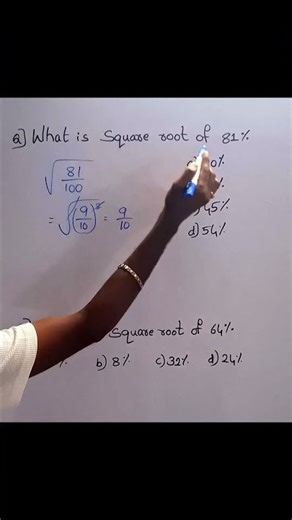 Q] What is Square root of 81%
√81/100
0%
= √(9/10)² = 9/10
45%
d) 54%
Square root of 64%
%. b) 8% c) 32% d) 24%